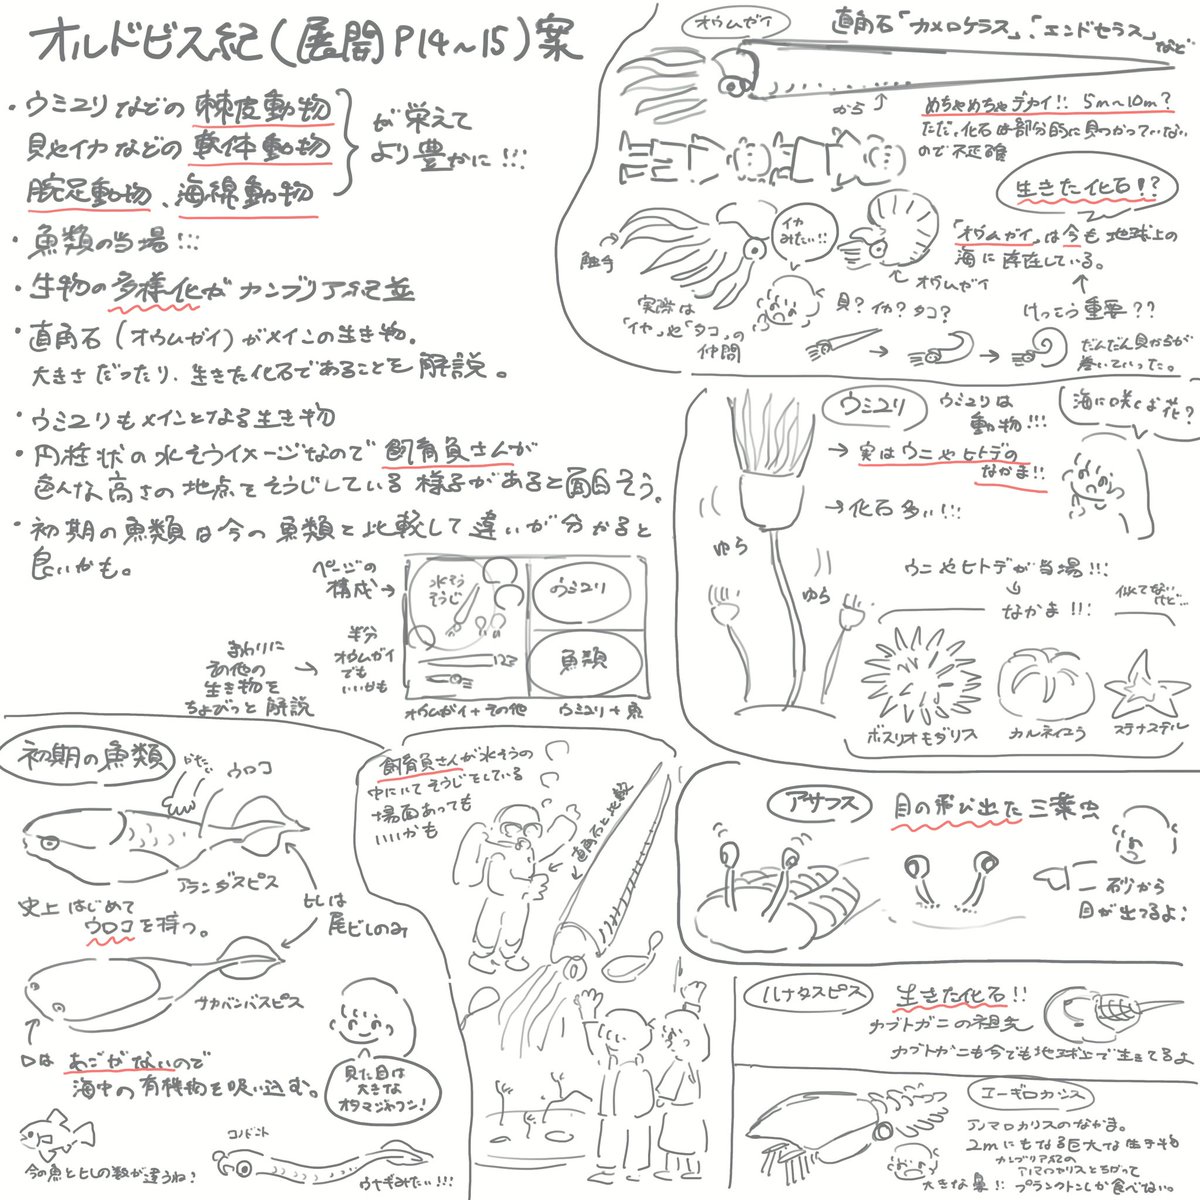 オルドビス紀(展開P14〜15)案
・ウミユリなどの棘皮動物
貝やイカなどの軟体動物
腕足動物、海綿動物
が栄えて
より豊かに!!!
・魚類の当場!!!
・生物の多様化がカンブリア紀並
・直角石(オウムガイ)がメインの生き物。
大きさだったり、生きた化石であることを解説。
・ウミユリもメインとなる生き物
・円柱状の水そうイメージなので飼育員さんが
色んな高さの地点をそうじしている様子があると面白そう。
・初期の魚類は今の魚類と比較して違いが分かると
良いかも。
ページの
構成→
水そう
そうじ
ウミユリ
魚類
123
まわりに
その他の
生き物を
ちょびっと解説
半分
オウムガイ
でも
いいかも
オウムガイ+その他
ウミユリ+魚
オウムガイ
直角石「カメロケラス」、「エンドセラス」など
から
めちゃめちゃデカイ!! 5m〜10m?
ただ、化石は部分的に見つかっていない
ので不正確
生きた化石!?
「オウムガイ」は今も地球上の
海に存在している。
けっこう重要??
触手
イカ
みたい!!
オウムガイ
実際は
「イカ」や「タコ」の
仲間
貝?イカ?タコ?
だんだん貝からが
巻いていった。
ウミユリ
ウミユリは
動物!!!
→実はウニやヒトデの
なかま!!
→化石多い!!!
海に咲くお花?
ゆら
ゆら
ウニやヒトデが当場!!!
なかま!!
似てない
けど…
ボスリオモダリス
カルネイユウ
ステナステル
アサフス
目の飛び出た三葉虫
砂から
目が出てるよ!
ルナタスピス
生きた化石!!
カブトガニの祖先
カブトガニも今でも地球上で生きてるよ
エーギロカシス
アノマロカリスのなかま。
2mにもなる巨大な生き物
カンブリア紀の
アノマロカリスとちがって
プランクトンしか食べない。
大きな鼻!!
初期の魚類
かたい
ウロコ
アランダスピス
史上はじめて
ウロコを持つ。
ヒレは
尾ビレのみ
サカバンバスピス
口はあごがないので
海中の有機物を吸い込む。
見た目は
大きな
オタマジャクシ!
今の魚とヒレの数が違うね!
コノドント
ウナギみたい!!!
飼育員さんが水そうの
中にいてそうじをしている
場面あっても
いいかも
直角石と比較